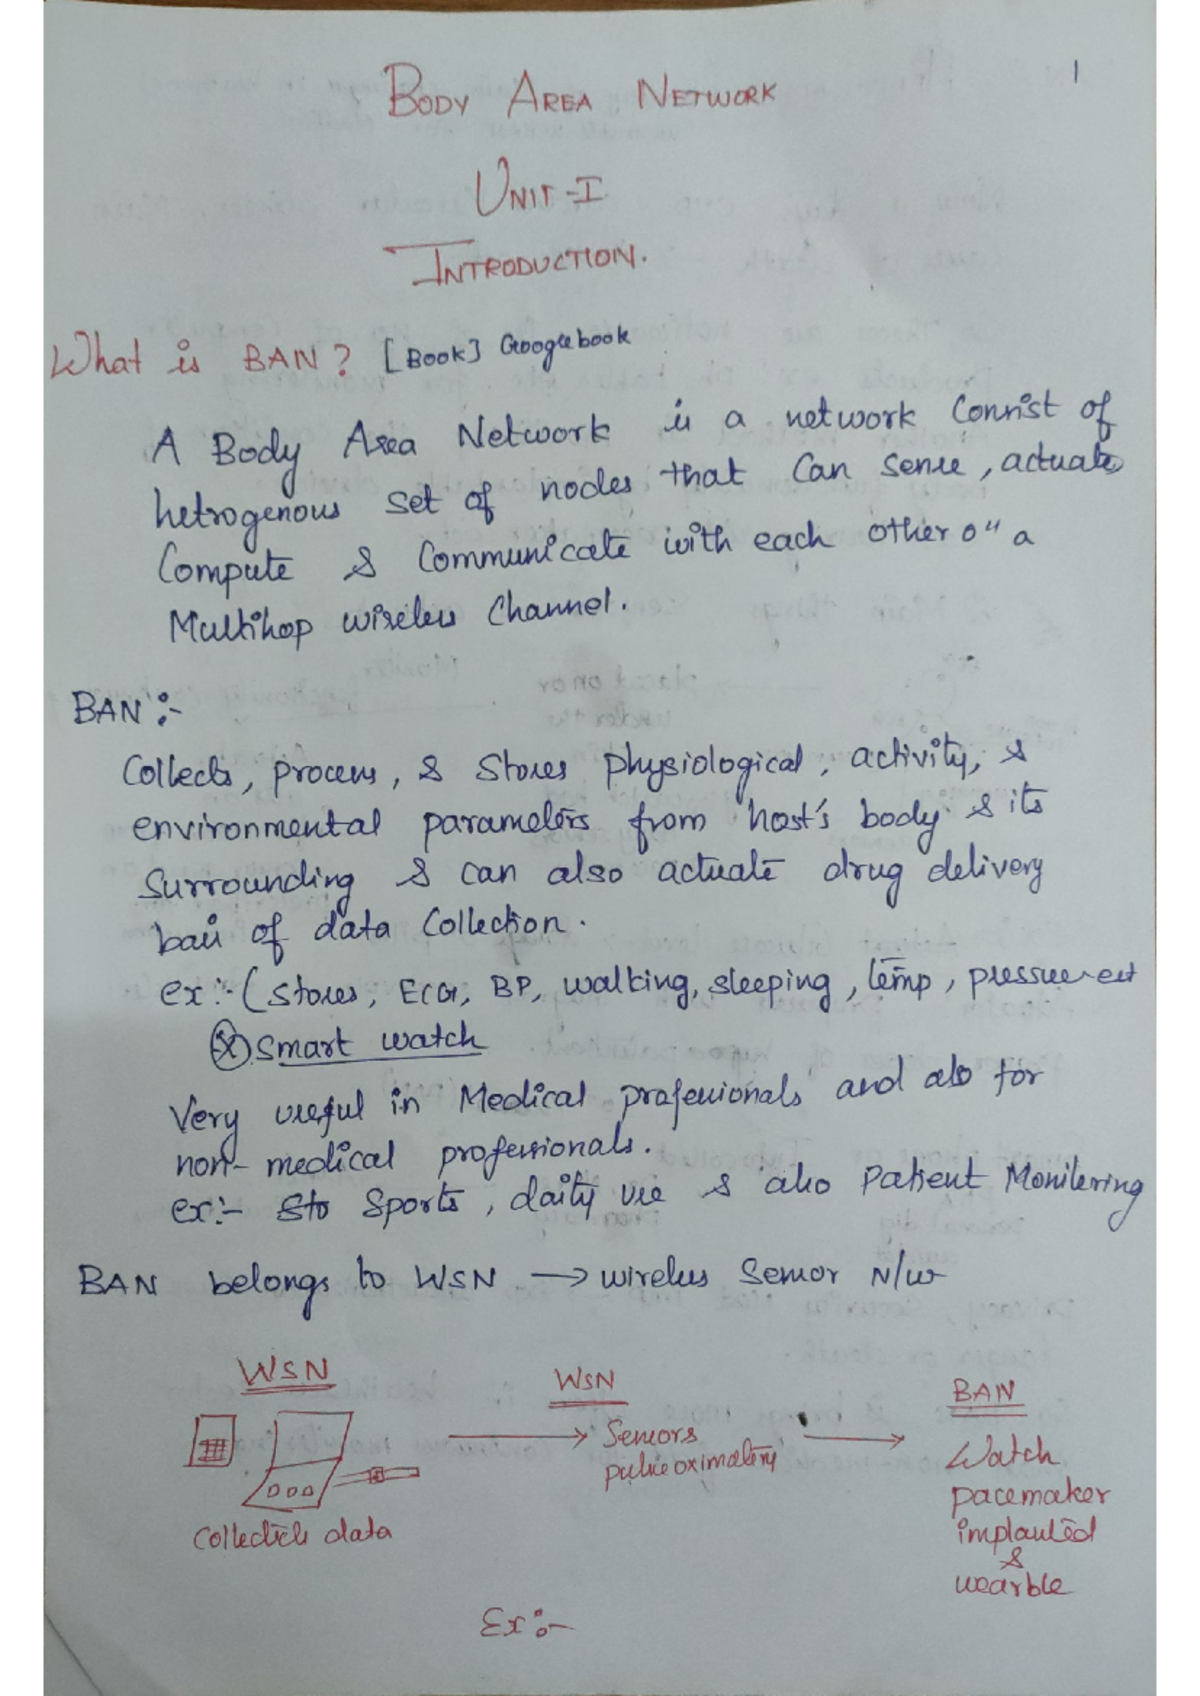 1
BODY AREA NETWORK
UNIT-I
INTRODUCTION.
What is BAN? [Book] Googlebook
A Body Area Network is a network Consist of
hetrogenous set of nodes that Can sense, actuate
Compute & Communicate with each other o" a
Multihop wireless Channel.
BAN :-
Collects, process, & Stores physiological, activity, &
environmental parameters from host's body & its
Surrounding & can also actuate drug delivery
basis of data Collection.
ex :- (stores, ECG, BP, walking, sleeping, temp, pressure ext
Smart watch
Very useful in Medical professionals and also for
non-medical professionals.
ex:- Sports, daily use & also Patient Monitering
BAN belongs to WSN → wireless Sensor N/w
WSN
WSN
BAN
Sensors
pulse oximetery
Watch
pacemaker
implanted
&
wearble
data
Ex :-